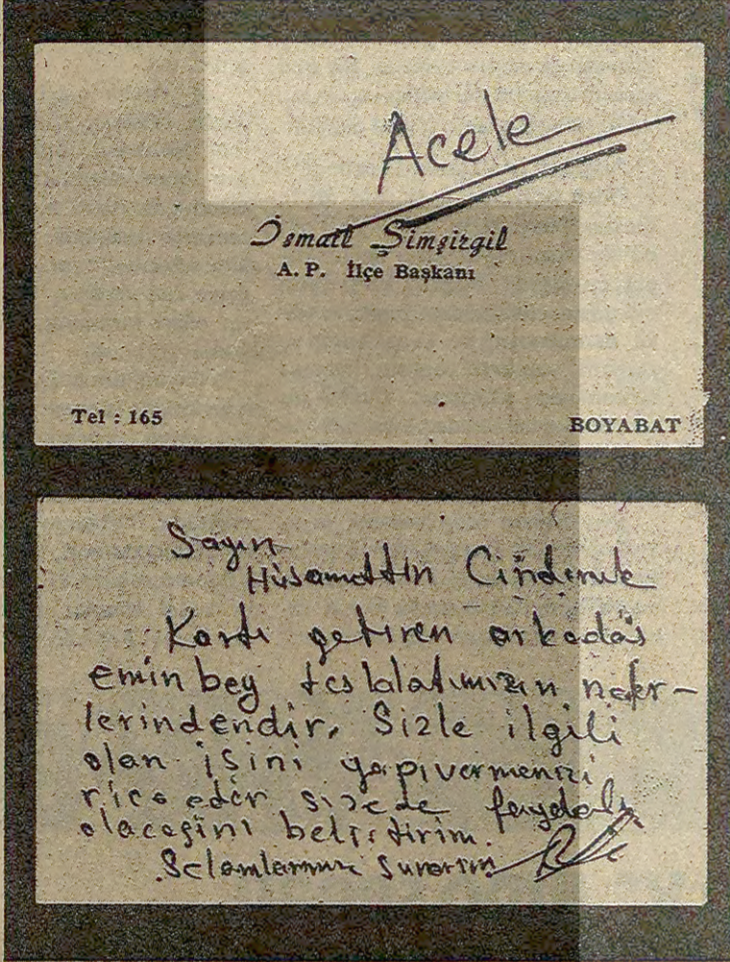 Acele
İsmail Şimşirgil
A. P. İlçe Başkanı
Tel : 165
BOYABAT
Sayın
Hüsamettin Cindoruk
Kartı getiren arkadaş
emin bey teşkilatımızın nefer-
lerindendir. Sizle ilgili
olan işini yapıvermenizi
rica eder size de faydalı
olacağını belirtirim.
Selamlarımı sunarım